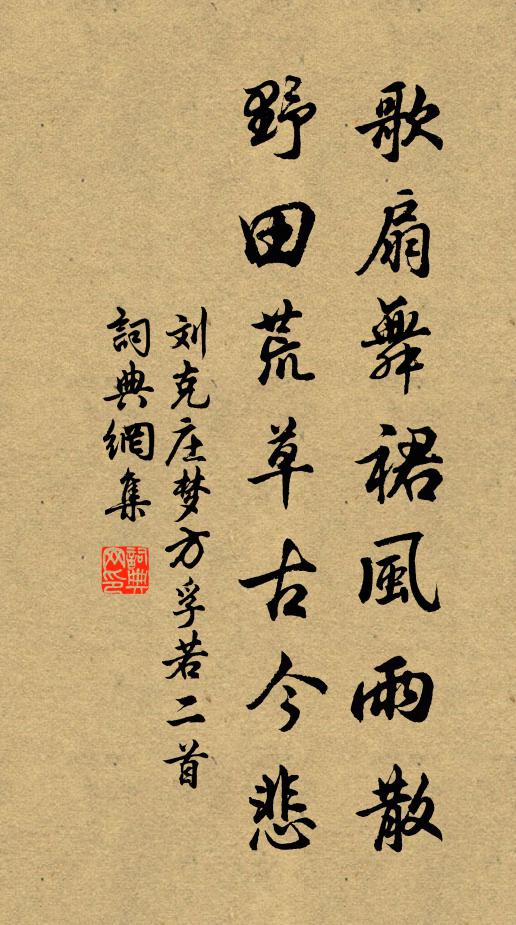 歌扇舞裙風雨散
野田荒草古今悲
刘克庄梦方孚若二首
詞典網集
詞典网印